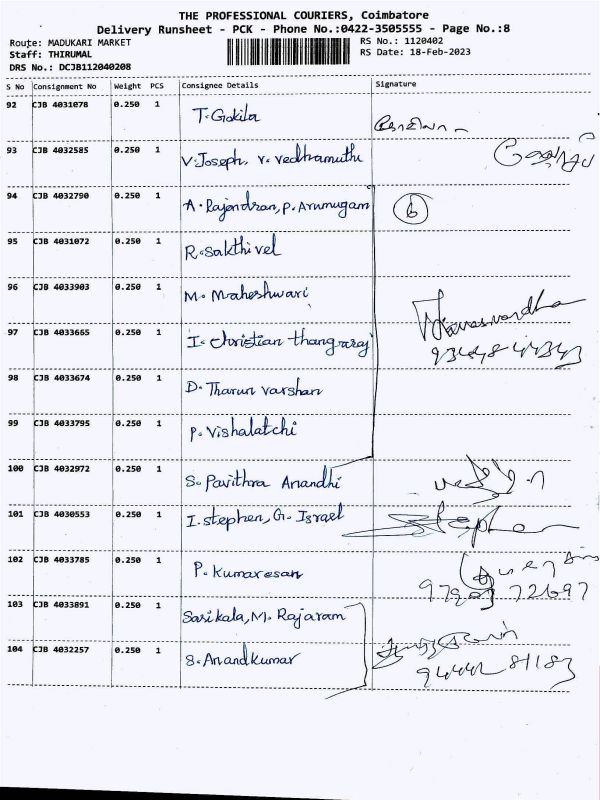 THE PROFESSIONAL COURIERS, Coimbatore
Delivery Runsheet - PCK - Phone No.:0422-3505555 - Page No.:8
Route: MADUKARI MARKET
RS No.: 1120402
Staff: THIRUMAL
RS Date: 18-Feb-2023
DRS No.: DCJB112040208
S No Consignment No Weight PCS Consignee Details Signature
92 CJB 4031078 0.250 1 T. Gokila கோகிலா
93 CJB 4032585 0.250 1 V. Joseph, V. Vedhamuthu
94 CJB 4032790 0.250 1 A. Rajendran, P. Arumugam 6
95 CJB 4031072 0.250 1 R. Sakthivel
96 CJB 4033903 0.250 1 M. Maheshwari
97 CJB 4033665 0.250 1 I. Christian thangaraj
98 CJB 4033674 0.250 1 D. Tharun varshan
99 CJB 4033795 0.250 1 P. Vishalatchi
100 CJB 4032972 0.250 1 S. Pavithra Anandhi
101 CJB 4030553 0.250 1 I. stephen, G. Israel Stephen
102 CJB 4033785 0.250 1 P. Kumaresan
103 CJB 4033891 0.250 1 Sasikala, M. Rajaram
104 CJB 4032257 0.250 1 S. Anandkumar